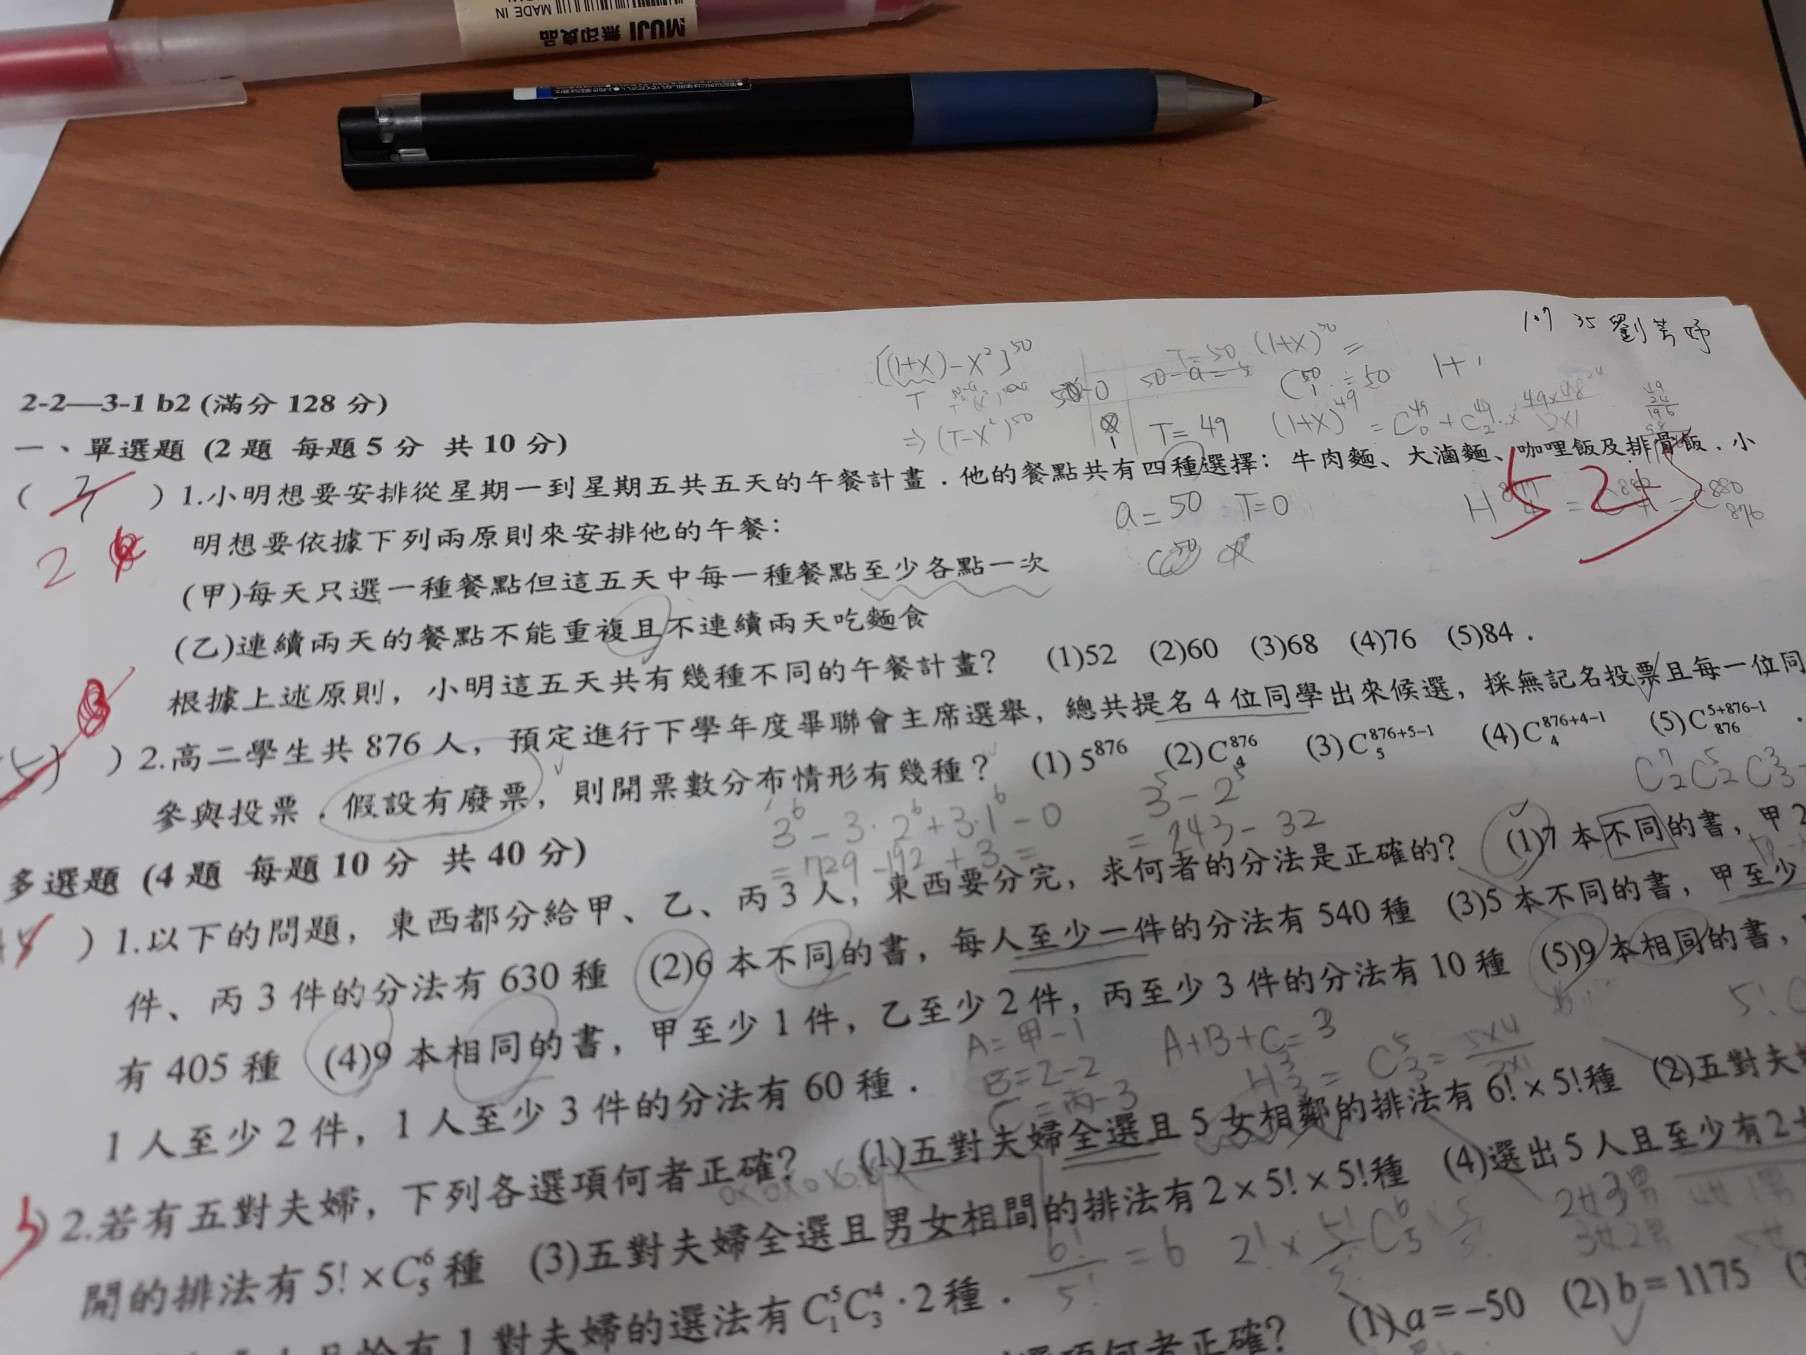 MUJI 無印良品
MADE IN
107 35 劉
[(1+X)-X²]⁵⁰
T=50 (1+X)⁵⁰=
⇒(T-X²)⁵⁰
T=49
a=50 T=0
2-2—3-1 b2 (滿分 128 分)
一、單選題 (2 題 每題 5 分 共 10 分)
( ) 1.小明想要安排從星期一到星期五共五天的午餐計畫．他的餐點共有四種選擇：牛肉麵、大滷麵、咖哩飯及排骨飯．小
明想要依據下列兩原則來安排他的午餐：
2
(甲)每天只選一種餐點但這五天中每一種餐點至少各點一次
(乙)連續兩天的餐點不能重複且不連續兩天吃麵食
根據上述原則，小明這五天共有幾種不同的午餐計畫？ (1)52 (2)60 (3)68 (4)76 (5)84．
) 2.高二學生共 876 人，預定進行下學年度畢聯會主席選舉，總共提名 4 位同學出來候選，採無記名投票且每一位同
參與投票．假設有廢票，則開票數分布情形有幾種？ (1) 5⁸⁷⁶ (2) C⁸⁷⁶₄ (3) C⁸⁷⁶⁺⁵⁻¹₅ (4) C⁸⁷⁶⁺⁴⁻¹₄ (5) C⁵⁺⁸⁷⁶⁻¹₈₇₆．
3⁶-3·2⁶+3·1⁶-0
=729-192+3=
3⁵-2⁵
=243-32
C⁷₂C⁵₂C³₃
多選題 (4 題 每題 10 分 共 40 分)
) 1.以下的問題，東西都分給甲、乙、丙 3 人，東西要分完，求何者的分法是正確的？ (1)7 本不同的書，甲 2
件、丙 3 件的分法有 630 種 (2)6 本不同的書，每人至少一件的分法有 540 種 (3)5 本不同的書，甲至少
有 405 種 (4)9 本相同的書，甲至少 1 件，乙至少 2 件，丙至少 3 件的分法有 10 種 (5)9 本相同的書，
1 人至少 2 件，1 人至少 3 件的分法有 60 種．
A=甲-1
B=乙-2
C=丙-3
A+B+C=3
H³₃=C⁵₃=
) 2.若有五對夫婦，下列各選項何者正確？ (1)五對夫婦全選且 5 女相鄰的排法有 6!×5!種 (2)五對夫
開的排法有 5!×C⁶₅ 種 (3)五對夫婦全選且男女相間的排法有 2×5!×5!種 (4)選出 5 人且至少有 2
6!/5!=6
2女3男
3女2男
恰有 1 對夫婦的選法有 C⁵₁C⁴₃·2 種．
何者正確？ (1) a=-50 (2) b=1175